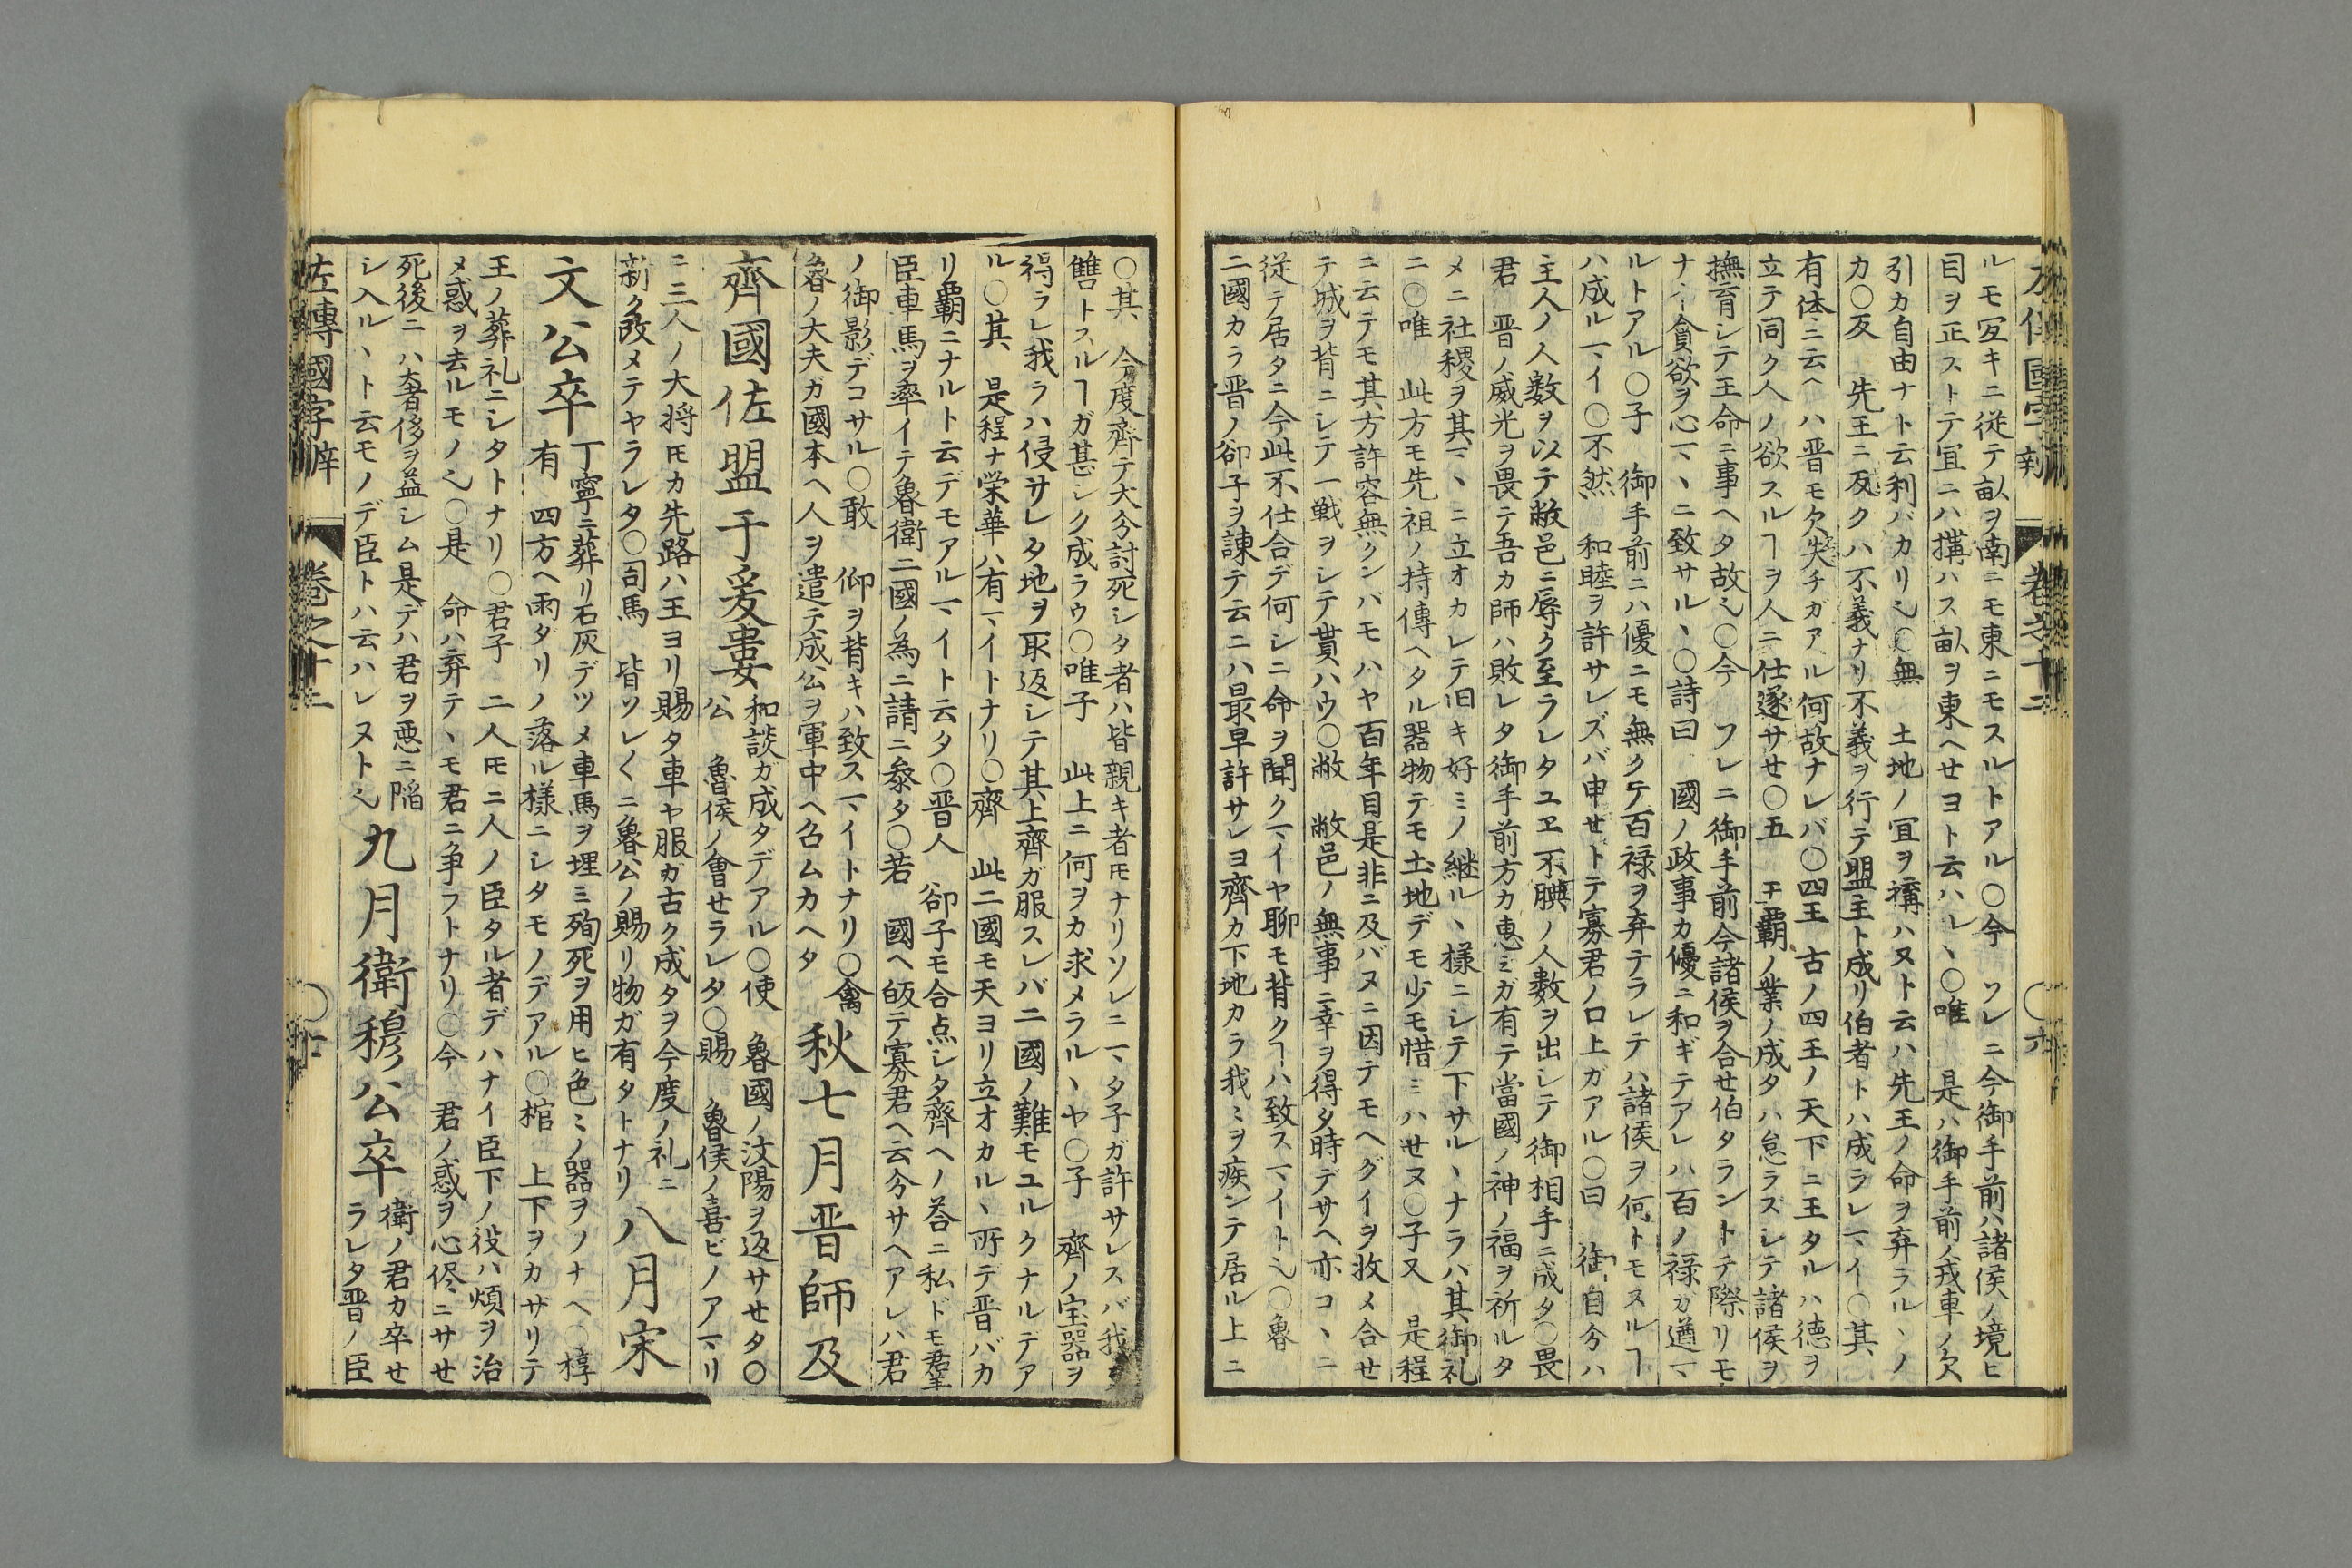 ルモ宜キニ従テ畝ヲ南ニモ東ニモスルトアル〇今 ソレニ今御手前ハ諸侯ノ境ヒ
目ヲ正ストテ宜ニハ搆ハス畝ヲ東ヘせヨト云ハル丶〇唯 是ハ御手前ノ戎車ノ欠
引カ自由ナト云利バカリ也〇無 土地ノ宜ヲ搆ハヌト云ハ先王ノ命ヲ弃ラル丶ノ
カ〇反 先王ニ反クハ不義ナリ不義ヲ行テ盟主ト成リ伯者トハ成ラレヿ丶イ〇其
有体ニ云ヘハ晋モ欠失チガアル何故ナレバ〇四王 古ノ四王ノ天下ニ王タルハ徳ヲ
立テ同ク人ノ欲スルヿヲ人ニ仕遂サせ〇五 五覇ノ業ノ成タハ怠ラスシテ諸侯ヲ
撫育シテ王命ニ事ヘタ故也〇今 ソレニ御手前今諸侯ヲ合せ伯タラントテ際リモ
ナイ貪欲ヲ心マ丶ニ致サル丶〇詩曰 國ノ政事カ優ニ和ギテアレハ百ノ禄ガ遒マ
ルトアル〇子 御手前ニハ優ニモ無クテ百禄ヲ弃テラレテハ諸侯ヲ何トモスルヿ
ハ成ルマイ〇不然 和睦ヲ許サレズバ申せトテ寡君ノ口上ガアル〇曰 御自分ハ
主人ノ人数ヲ以テ敝邑ニ辱ク至ラレタユヱ不腆ノ人数ヲ出シテ御相手ニ成タ〇畏
君 晋ノ威光ヲ畏テ吾カ師ハ敗レタ御手前方カ恵ミガ有テ當國ノ神ノ福ヲ祈ルタ
メニ社稷ヲ其マ丶ニ立オカレテ旧キ好ミノ継ル丶様ニシテ下サル丶ナラハ其御礼
ニ〇唯 此方モ先祖ノ持傳ヘタル器物テモ土地デモ少モ惜ミハせヌ〇子又 是程
ニ云テモ其方許容無クンバモハヤ百年目是非ニ及バヌニ因テモヘグイヲ攻メ合せ
テ城ヲ背ニシテ一戦ヲシテ貰ハウ〇敝 敝邑ノ無事ニ幸ヲ得タ時デサヘ亦コ丶ニ
従テ居タニ今此不仕合デ何シニ命ヲ聞クマイヤ聊モ背クヿハ致スマイト也〇魯
二國カラ晋ノ郤子ヲ諌テ云ニハ最早許サレヨ齊カ下地カラ我ミヲ疾ンテ居ル上ニ
卷之十二
〇其 今度齊テ大分討死シタ者ハ皆親キ者𪜈ナリソレニマタ子ガ許サレスバ我ヲ
讐トスルヿガ甚シク成ラウ〇唯子 此上ニ何ヲカ求メラル丶ヤ〇子 齊ノ宝器ヲ
得ラレ我ラハ侵サレタ地ヲ取返シテ其上齊ガ服スレバ二國ノ難モユルクナルデア
ル〇其 是程ナ栄華ハ有マイトナリ〇齊 此二國モ天ヨリ立オカル丶所テ晋バカ
リ覇ニナルト云デモアルマイト云タ〇晋人 郤子モ合点シタ齊ヘノ荅ニ私ドモ羣
臣車馬ヲ率イテ魯衛二國ノ為ニ請ニ叅タ〇若 國ヘ皈テ寡君ヘ云分サヘアレハ君
ノ御影デコサル〇敢 仰ヲ背キハ致スマイトナリ〇禽
魯ノ大夫ガ國本ヘ人ヲ遣テ成公ヲ軍中ヘ召ムカヘタ
秋七月晋師及
齊國佐盟于爰婁
和談ガ成タデアル〇使 魯國ノ汶陽ヲ返サせタ〇
公 魯侯ノ會せラレタ〇賜 魯侯ノ喜ビノアマリ
ニ三人ノ大将𪜈カ先路ハ王ヨリ賜タ車ヤ服ガ古ク成タヲ今度ノ礼ニ
新ク改メテヤラレタ〇司馬 皆ソレ〱ニ魯公ノ賜リ物ガ有タトナリ
八月宋
文公卒
丁寧ニ葬リ石灰デツメ車馬ヲ埋ミ殉死ヲ用ヒ色ミノ器ヲソナヘ〇椁
有 四方ヘ雨タリノ落ル様ニシタモノデアル〇棺 上下ヲカザリテ
王ノ葬礼ニシタトナリ〇君子 二人𪜈ニ人ノ臣タル者デハナイ臣下ノ役ハ煩ヲ治
メ惑ヲ去ルモノ也〇是 命ハ弃テ丶モ君ニ争フトナリ〇今 君ノ惑ヲ心侭ニサせ
死後ニハ奢侈ヲ益シム是デハ君ヲ悪ニ陥
シ入ル丶ト云モノデ臣トハ云ハレヌト也
九月衛穆公卒
衛ノ君カ卒せ
ラレタ晋ノ臣
左傳國字辯 卷之十二